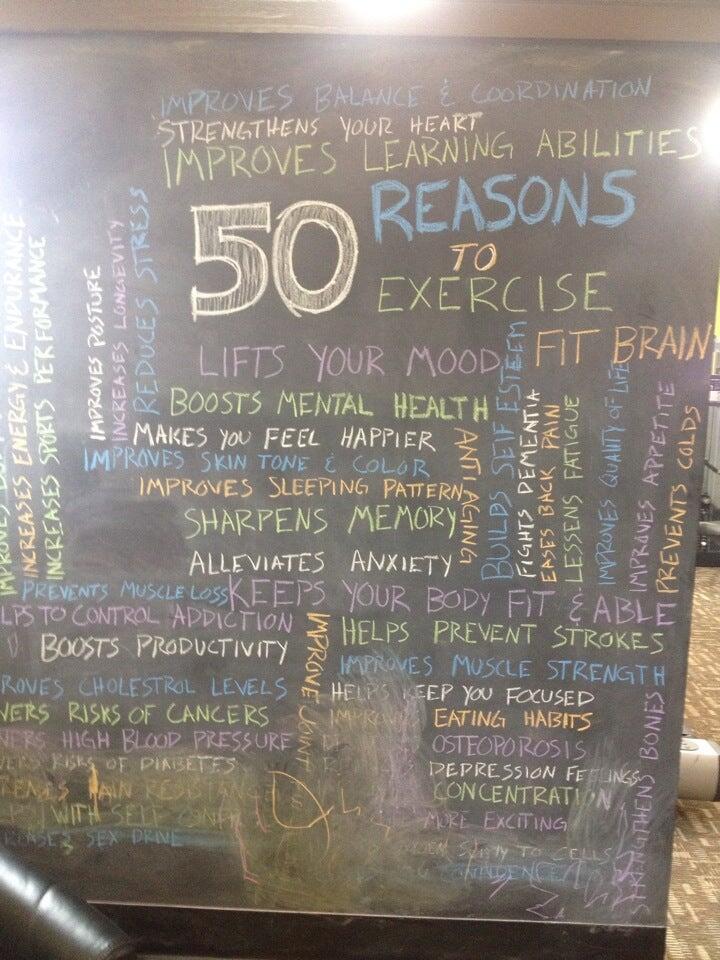 IMPROVES BALANCE & COORDINATION
STRENGTHENS YOUR HEART
IMPROVES LEARNING ABILITIES
50 REASONS
TO
EXERCISE
INCREASES ENERGY & ENDURANCE
INCREASES SPORTS PERFORMANCE
IMPROVES POSTURE
INCREASES LONGEVITY
REDUCES STRESS
LIFTS YOUR MOOD
FIT BRAIN
BOOSTS MENTAL HEALTH
MAKES YOU FEEL HAPPIER
IMPROVES SKIN TONE & COLOR
IMPROVES SLEEPING PATTERN
SHARPENS MEMORY
ALLEVIATES ANXIETY
ANTI AGING
BUILDS SELF ESTEEM
FIGHTS DEMENTIA
EASES BACK PAIN
LESSENS FATIGUE
IMPROVES QUALITY OF LIFE
IMPROVES APPETITE
PREVENTS COLDS
PREVENTS MUSCLE LOSS
KEEPS YOUR BODY FIT & ABLE
LPS TO CONTROL ADDICTION
BOOSTS PRODUCTIVITY
ROVES CHOLESTROL LEVELS
WERS RISKS OF CANCERS
WERS HIGH BLOOD PRESSURE
WERS RISKS OF DIABETES
WITH SELF
SEX DRIVE
IMPROVE JOINT
HELPS PREVENT STROKES
IMPROVES MUSCLE STRENGTH
HELPS KEEP YOU FOCUSED
IMPROVES EATING HABITS
OSTEOPOROSIS
DEPRESSION FEELINGS
CONCENTRATION
MORE EXCITING
TO CELLS
STRENGTHENS BONES